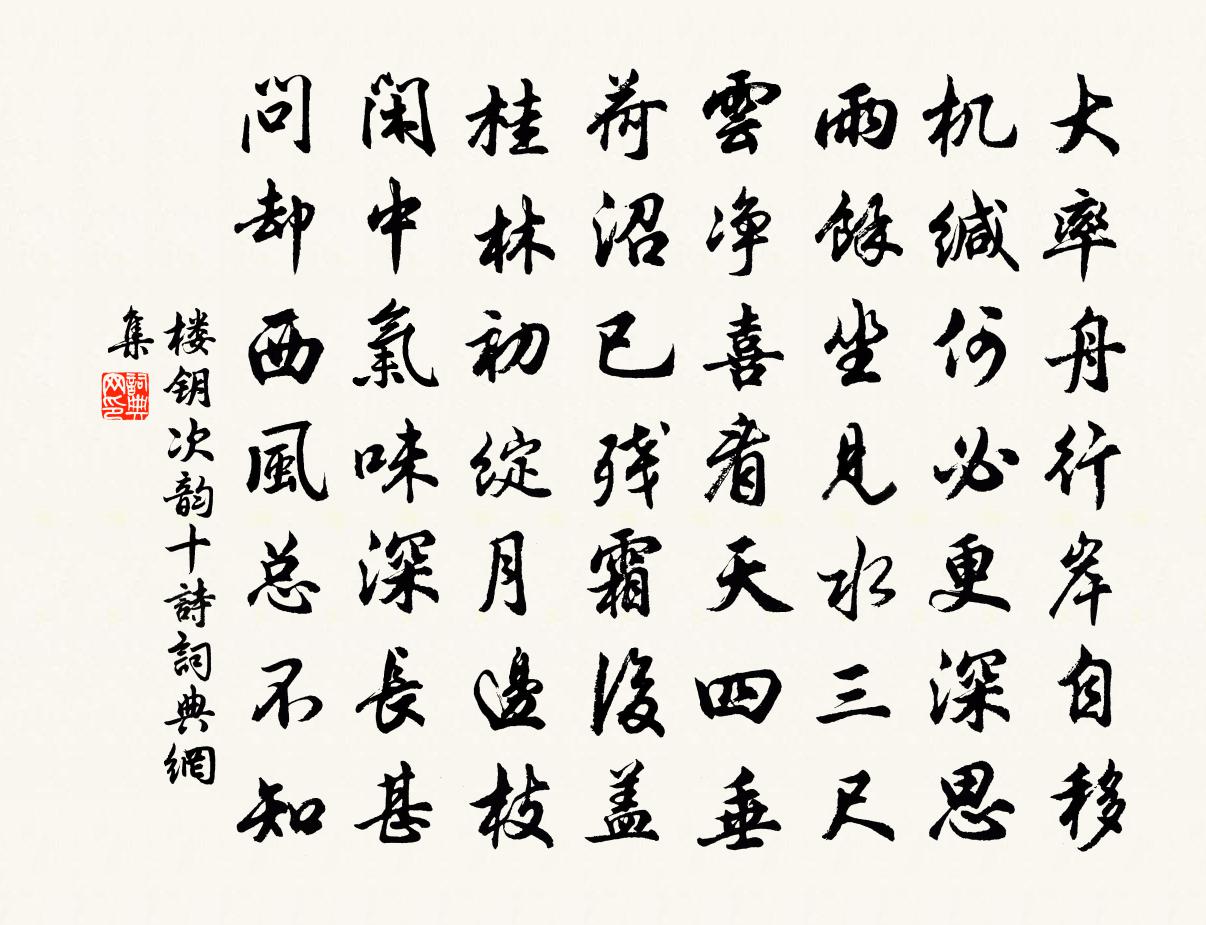 大率舟行岸自移
机缄何必更深思
雨餘坐見水三尺
雲净喜看天四垂
荷沼已残霜後盖
桂林初綻月邊枝
閑中氣味深長甚
问却西風总不知
楼钥次韵十詩詞典網
集
詞典网印